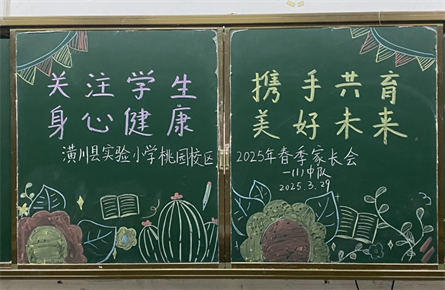 关注学生
身心健康
潢川县实验小学桃园校区
携手共育
美好未来
2025年春季家长会
一(1)中队
2025.3.29